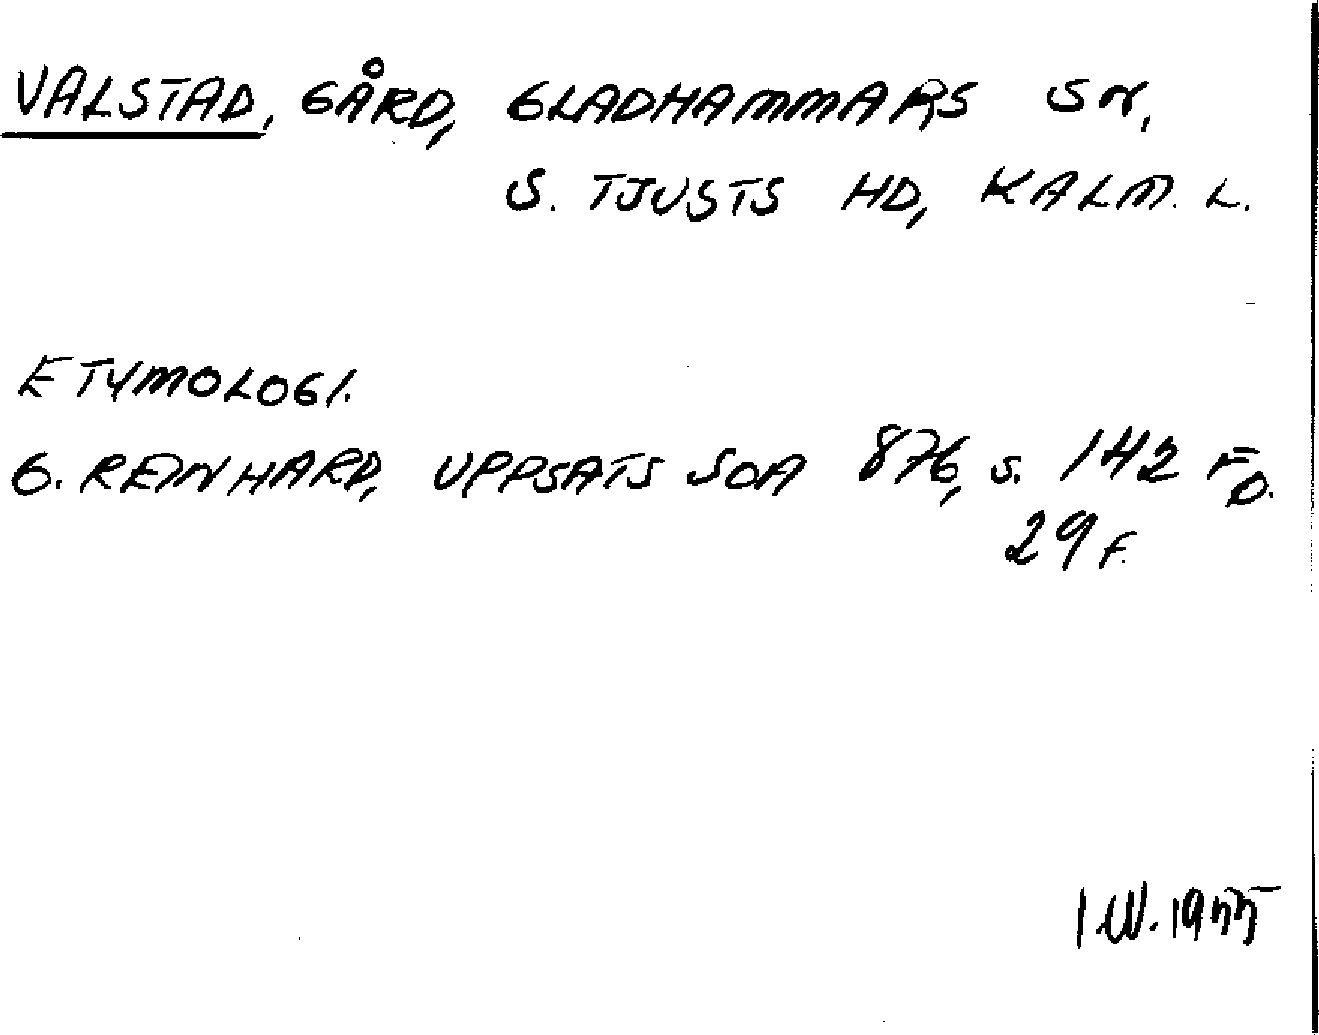 VALSTAD, GÅRD, GLADHAMMARS SN,
S. TJUSTS HD, KALM. L.
ETYMOLOGI.
G. REINHARD, UPPSATS SOA 876, S. 142 F O.
29 F.
I W. 1955